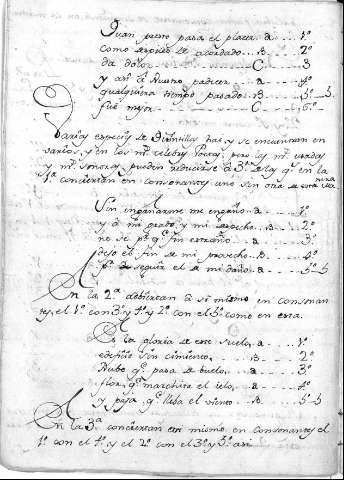 Juan presto pasa el placer a 1º
como despues de acordado B 2º
da dolor C 3
y asi a Nuestro padecer a 4º
qualquiera tiempo pasado B 5-5
fue mejor C 6º
Varias especies de Quintillas hay y se encuentran en
varios, y en los Poetas, pero las mˢ usadas
y mˢ sonoras pueden reducirse a 3: en la
1ª conciertan en consonantes uno sin otro de esta
Sin engañarme me engaño a 1º
y à mi grado y mi despecho B 2º
no se pʳ qᵉ fin estraño a 3º
dejo el fin de mi provecho B 4º
pʳ seguir el de mi daño a 5º-5
En la 2ª advierten a si mismo en consonan
tes, el 1º con 3º y 4º y 2º con el 5º como en esta.
Es la gloria de este suelo, a 1º
edificio sin cimiento, B 2º
Nube qᵉ pasa de buelo, a 3º
flor, qᵉ marchita el ielo, a 4º
y paja qᵉ lleba el viento B 5-5
En la 3ª conciertan asi mismo en consonantes el
1º con el 4º y el 2º con el 3º y 5º asi